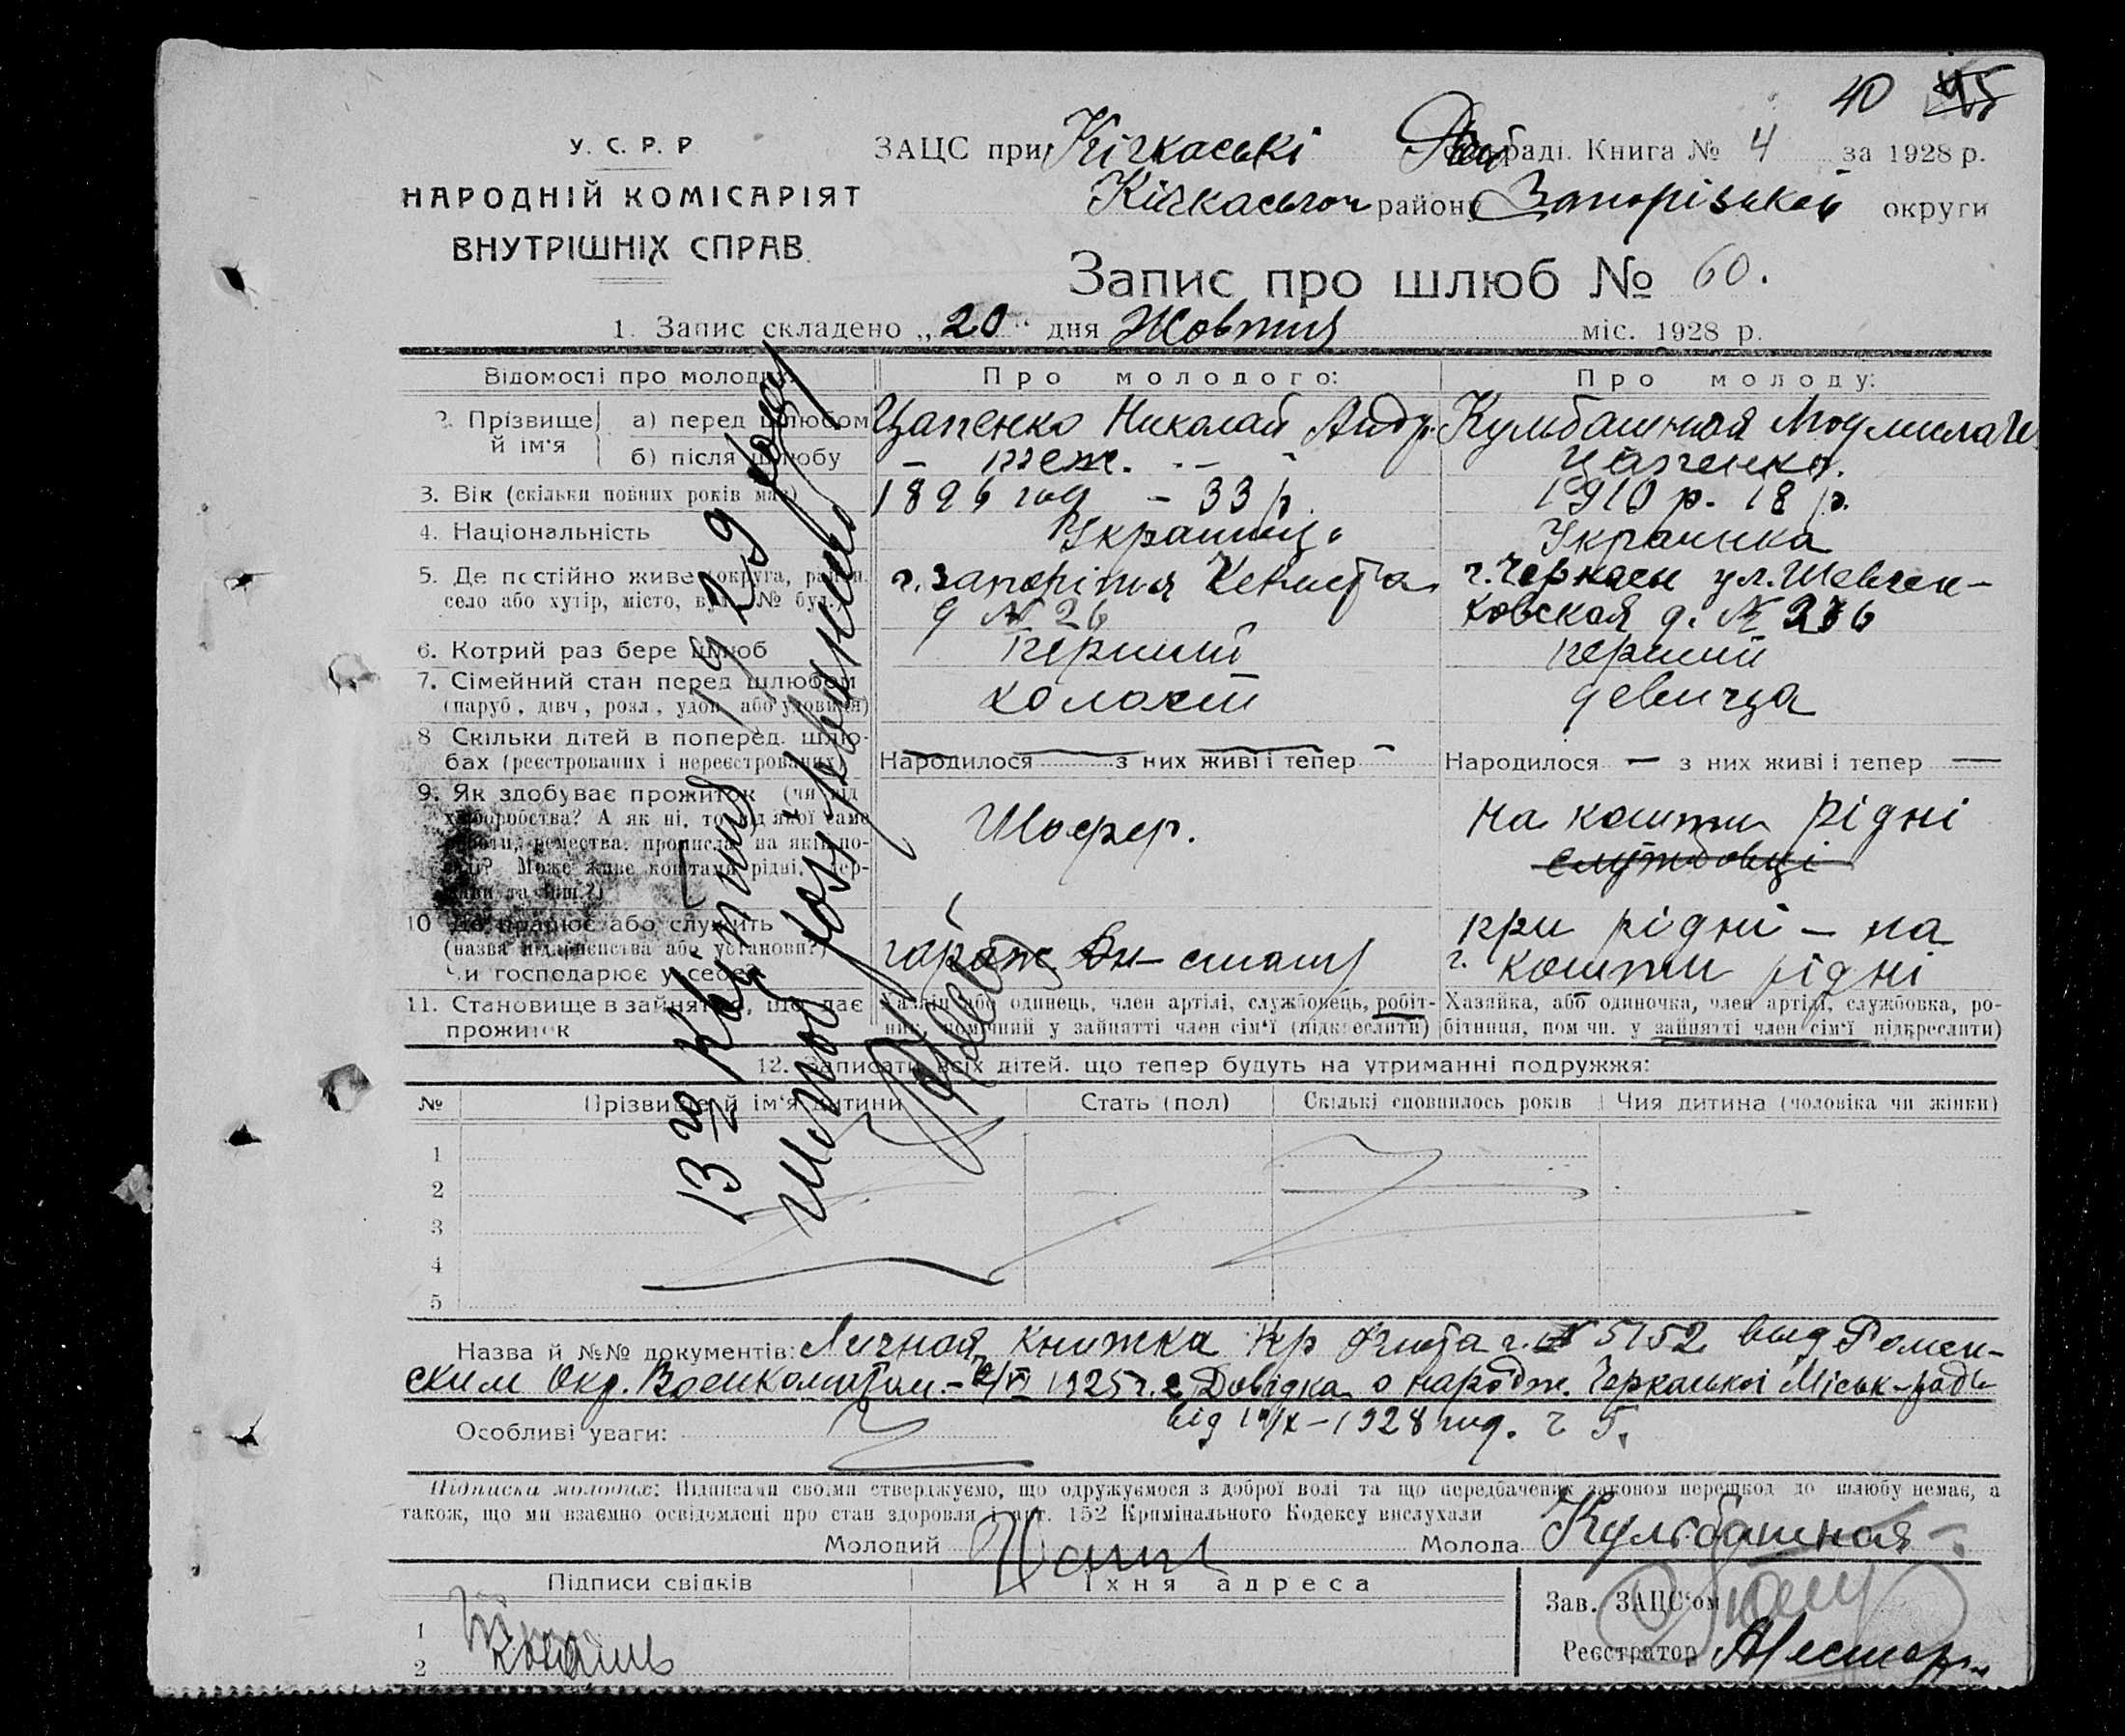 40 45
У. С. Р. Р.
НАРОДНІЙ КОМІСАРІЯТ
ВНУТРІШНІХ СПРАВ.
ЗАЦС при Кічкаські раді. Книга № 4 за 1928 р.
району Запорізької округи
Запис про шлюб № 60.
1. Запис складено „20“ дня Жовтня міс. 1928 р.
Відомості про молодих Про молодого: Про молоду:
2. Прізвище й ім'я
а) перед шлюбом Цапенко Николай Андр. Кульбашная
б) після шлюбу – теж. – Цапенко.
3. Вік (скільки повних років має) 1896 год – 33 р. 1910 р. 18 р.
4. Національність Украинец Украинка
5. Де постійно живе (округа, район, г. Запоріжжя г. Черкасы ул. Шевчен-
село або хутір, місто, вул., № буд.) д № 26 ковская д. №
6. Котрий раз бере шлюб перший перший
7. Сімейний стан перед шлюбом холост девица
(паруб., дівч., розл., удов. або удовиця)
8 Скільки дітей в поперед. шлю-
бах (реєстрованих і нереєстрованих) Народилося з них живі і тепер Народилося — з них живі і тепер —
9. Як здобуває прожиток (чи від
хліборобства? А як ні, то від якої саме Шофер. на кошти рідні
роботи, ремества, промисла, на якій по- службовці
саді? Може живе коштами рідні, дер-
жави та інш.?)
10 Де працює або служить при рідні – на
(назва підприємства або установи?) гараж кошти рідні
Чи господарює у себе?
11. Становище в зайнятті, що дає Хазяїн або одинець, член артілі, службовець, робіт- Хазяйка, або одиночка, член артілі, службовка, ро-
прожиток ник, помічний у зайнятті член сім'ї (підкреслити) бітниця, пом чн. у зайнятті член сім'ї підкреслити)
13 го Квітня 1929 року
Шлюб розірвано
12. Записати всіх дітей, що тепер будуть на утриманні подружжя:
№ Прізвище й ім'я дитини Стать (пол) Скількі сповнилось років Чия дитина (чоловіка чи жінки)
1
2
3
4
5
Назва й №№ документів: Личная книжка № 5152 выд Ромен-
ским Окр. Военкоматом. 1925 г. Довідка о народж. Черкаської Міськ-ради
Особливі уваги: від 1928 год. ч 5.
Підписи молодих: Підписами своїми стверджуємо, що одружуємося з доброї волі та що передбачених законом перешкод до шлюбу немає, а
також, що ми взаємно освідомлені про стан здоровля і арт. 152 Кримінального Кодексу вислухали
Молодий Молода Кульбашная
Підписи свідків Їхня адреса
1 Зав. ЗАЦС'ом
2 Реєстратор